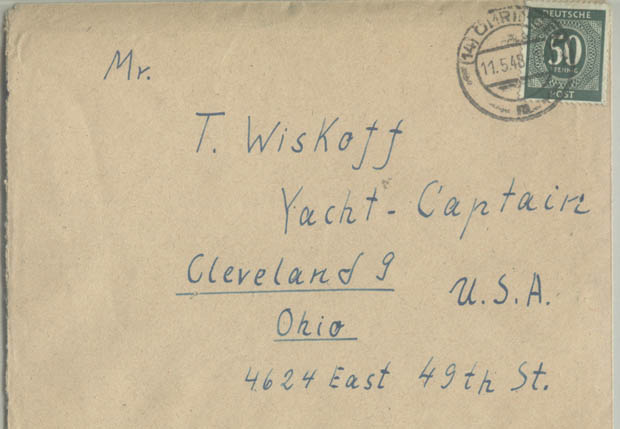 DEUTSCHE
50
PFENNIG
POST
(14) ÖHRIN
11.5.48
Mr.
T. Wiskoff
Yacht-Captain
Cleveland 9
U.S.A.
Ohio
4624 East 49th St.